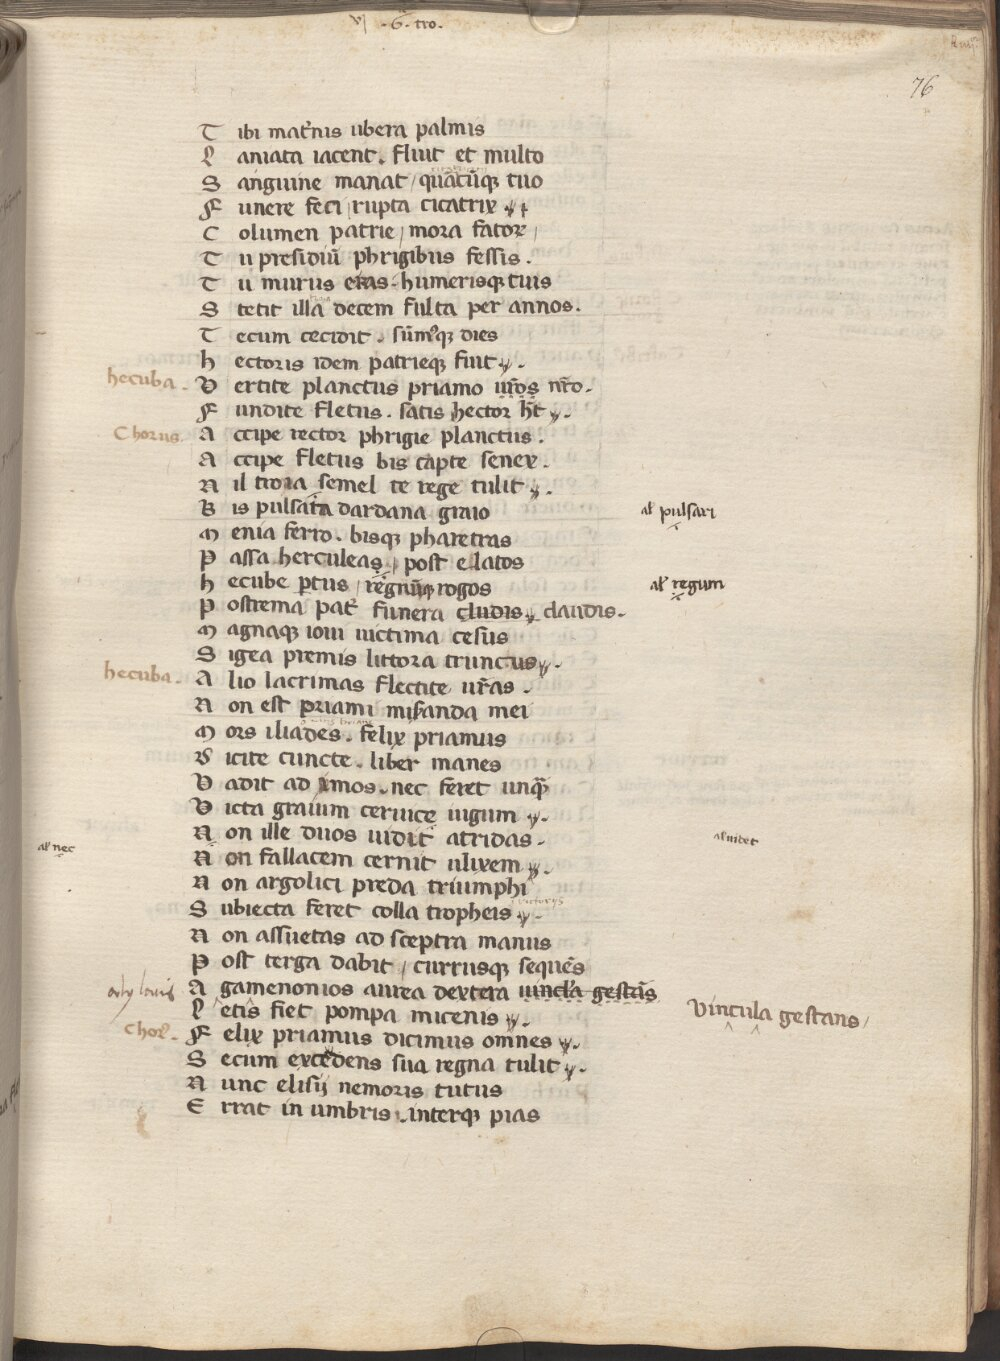 vj · 6ᵃ · tro.
76
T ibi mat̃nis ubera palmis
L aniata iacent. fluit et multo
S anguine manat / quãtũqꝫ tuo
F unere feci / rupta cicatrix
C olumen patrie / mora fatoꝝ /
T u presidiũ phrigibus fessis .
T u murus eras . humerisqꝫ tuis
S tetit illa decem fulta per annos .
T ecum cecidit . sũmꝰqꝫ dies
h ectoris idem patrieqꝫ fuit .
hecuba . V ertite planctus priamo ur̃os nr̃o .
F undite fletus . satis hector h̃t .
Chorus A ccipe rector phrigie planctus .
A ccipe fletus bis capte senex .
N il troia semel te rege tulit .
B is pulsata dardana graio al̃ pulsari
M enia ferro . bisqꝫ pharetras
P assa herculeas / post elatos
h ecube ꝑtus / regnũqꝫ rogos al̃ regum
P ostrema pat̃ funera cludis claudis .
M agnaqꝫ ioui uictima cesus
S igea premis littora truncus .
hecuba . A lio lacrimas flectite ur̃as .
N on est priami mis̃anda mei
M ors iliades . felix priamus
D icite cuncte . liber manes
V adit ad imos . nec feret unq̃
V icta graium ceruice iugum .
N on ille duos uidit atridas . al uidet
al̃ nec N on fallacem cernit ulixem .
N on argolici preda triumphi
S ubiecta feret colla tropheis .
N on assuetas ad sceptra manus
P ost terga dabit / currusqꝫ sequẽs
A gamenonios aurea dextera uincl̃a gestãs
L etis fiet pompa micenis . Vincula gestans /
Choꝝ . F elix priamus dicimus omnes .
S ecum excedens sua regna tulit .
N unc elisij nemoris tutus
E rrat in umbris . interqꝫ pias